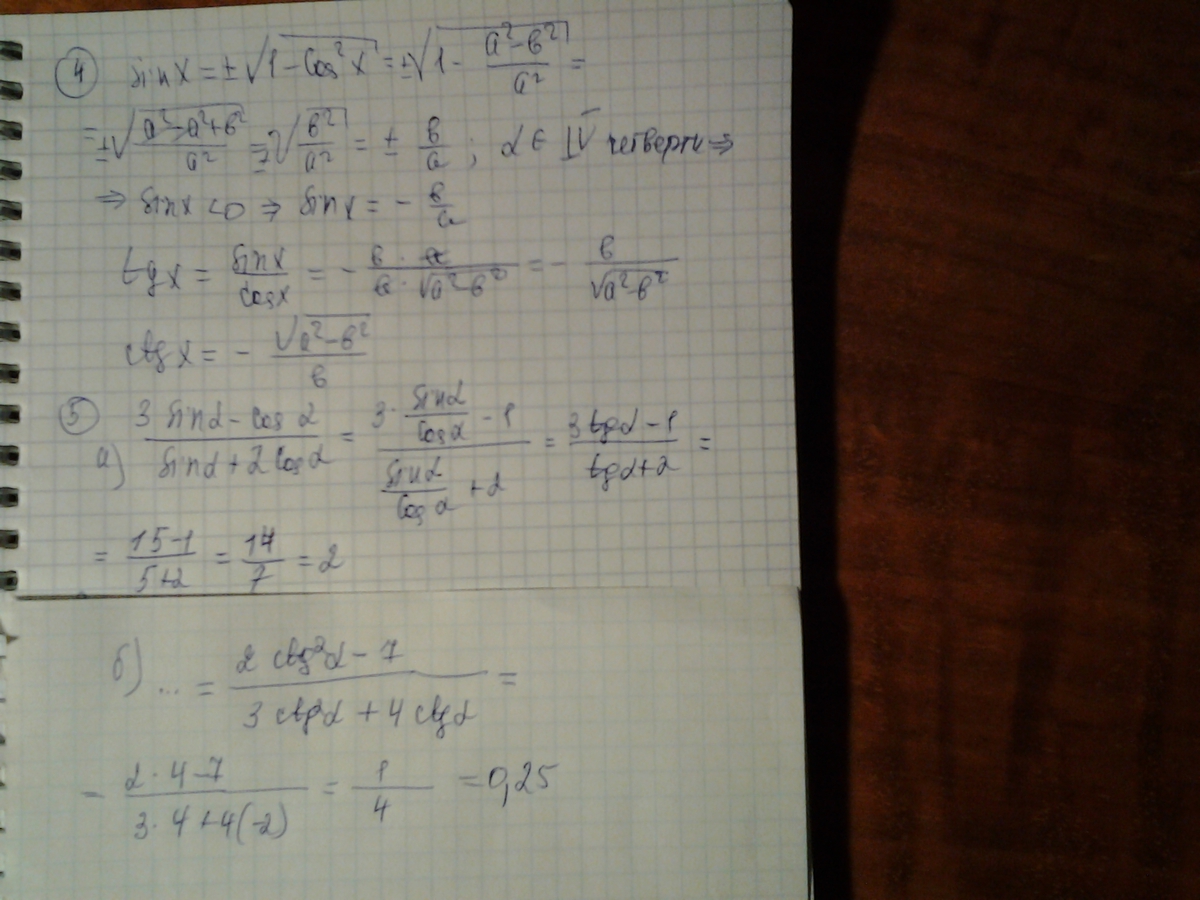 ④ sin x = ±√(1 - cos²x) = ±√(1 - (a²-в²)/a²) =
= ±√((a²-a²+в²)/a²) = ±√(в²/a²) = ± в/a ; α ∈ IV четверти ⇒
⇒ sin x < 0 ⇒ sin x = - в/a
tg x = sin x/cos x = - (в · a)/(a · √(a²-в²)) = - в/√(a²-в²)
ctg x = - √(a²-в²)/в
⑤ а) (3 sin α - cos α)/(sin α + 2 cos α) = (3 · sin α/cos α - 1)/(sin α/cos α + 2) = (3 tg α - 1)/(tg α + 2) =
= (15-1)/(5+2) = 14/7 = 2
б) ... = (2 ctg²α - 7)/(3 ctg²α + 4 ctg α) =
= (2 · 4 - 7)/(3 · 4 + 4(-2)) = 1/4 = 0,25